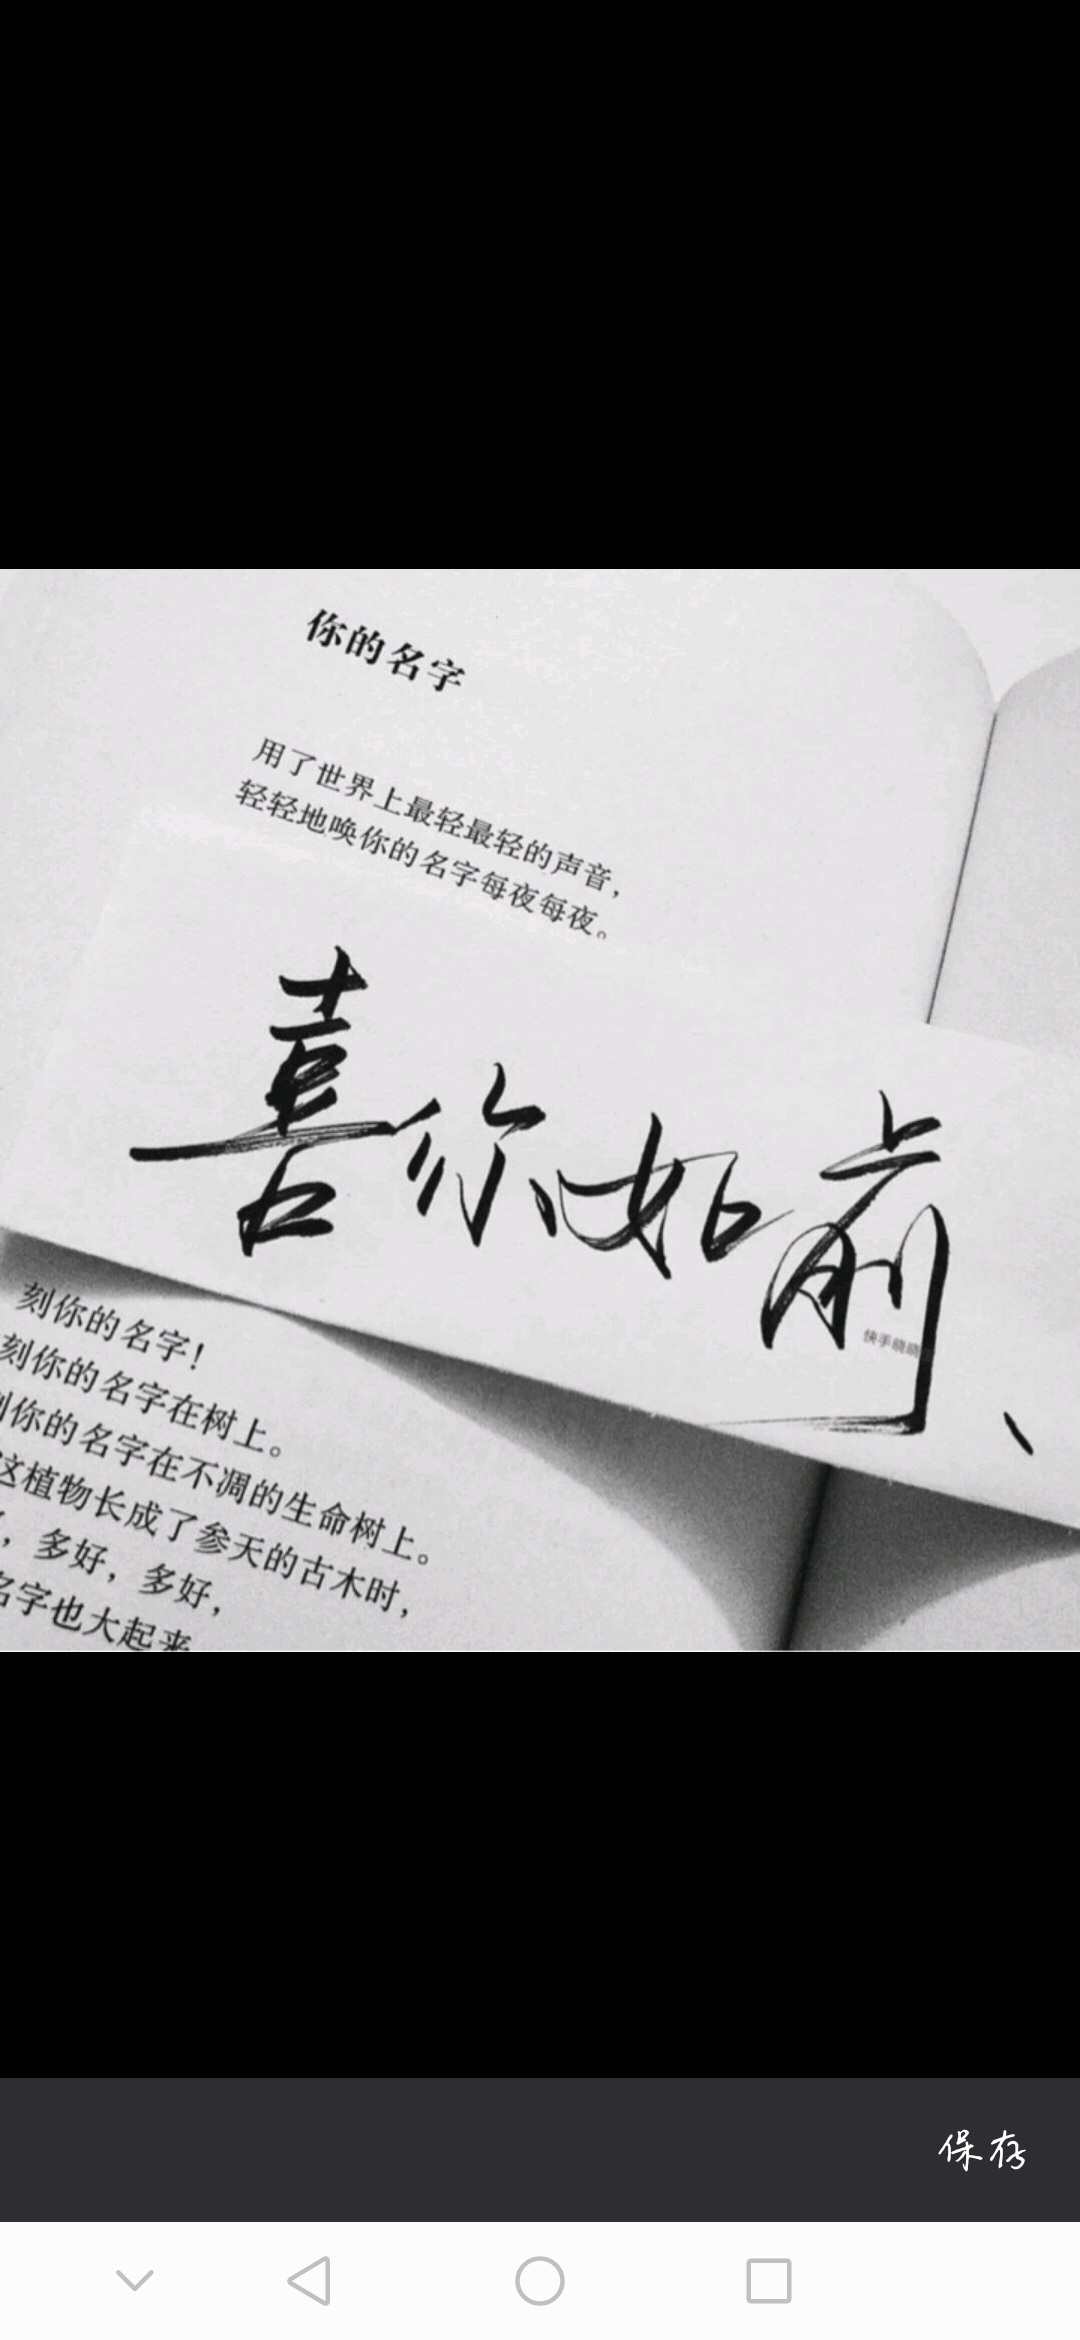 你的名字
用了世界上最轻最轻的声音，
轻轻地唤你的名字每夜每夜。
喜你如前、
快手晓晓
刻你的名字！
刻你的名字在树上。
刻你的名字在不凋的生命树上。
这植物长成了参天的古木时，
，多好，多好，
名字也大起来
保存